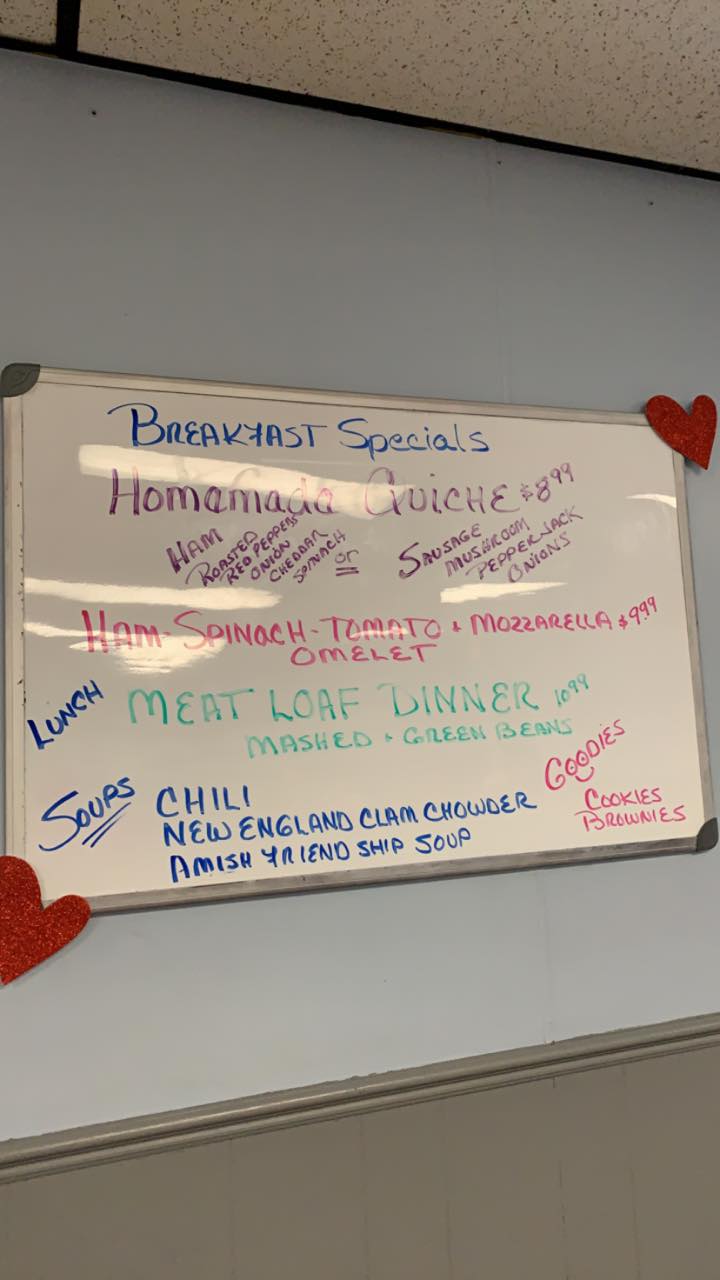 BREAKFAST Specials
Homamada QUICHE $8.99
HAM
ROASTED
RED PEPPERS
ONION
CHEDDAR
SPINACH
or
SAUSAGE
MUSHROOM
PEPPERJACK
ONIONS
HAM-SPINACH-TOMATO + MOZZARELLA $9.99
OMELET
LUNCH
MEAT LOAF DINNER 10.99
MASHED + GREEN BEANS
SOUPS
CHILI
NEW ENGLAND CLAM CHOWDER
AMISH FRIEND SHIP SOUP
GOODIES
COOKIES
BROWNIES